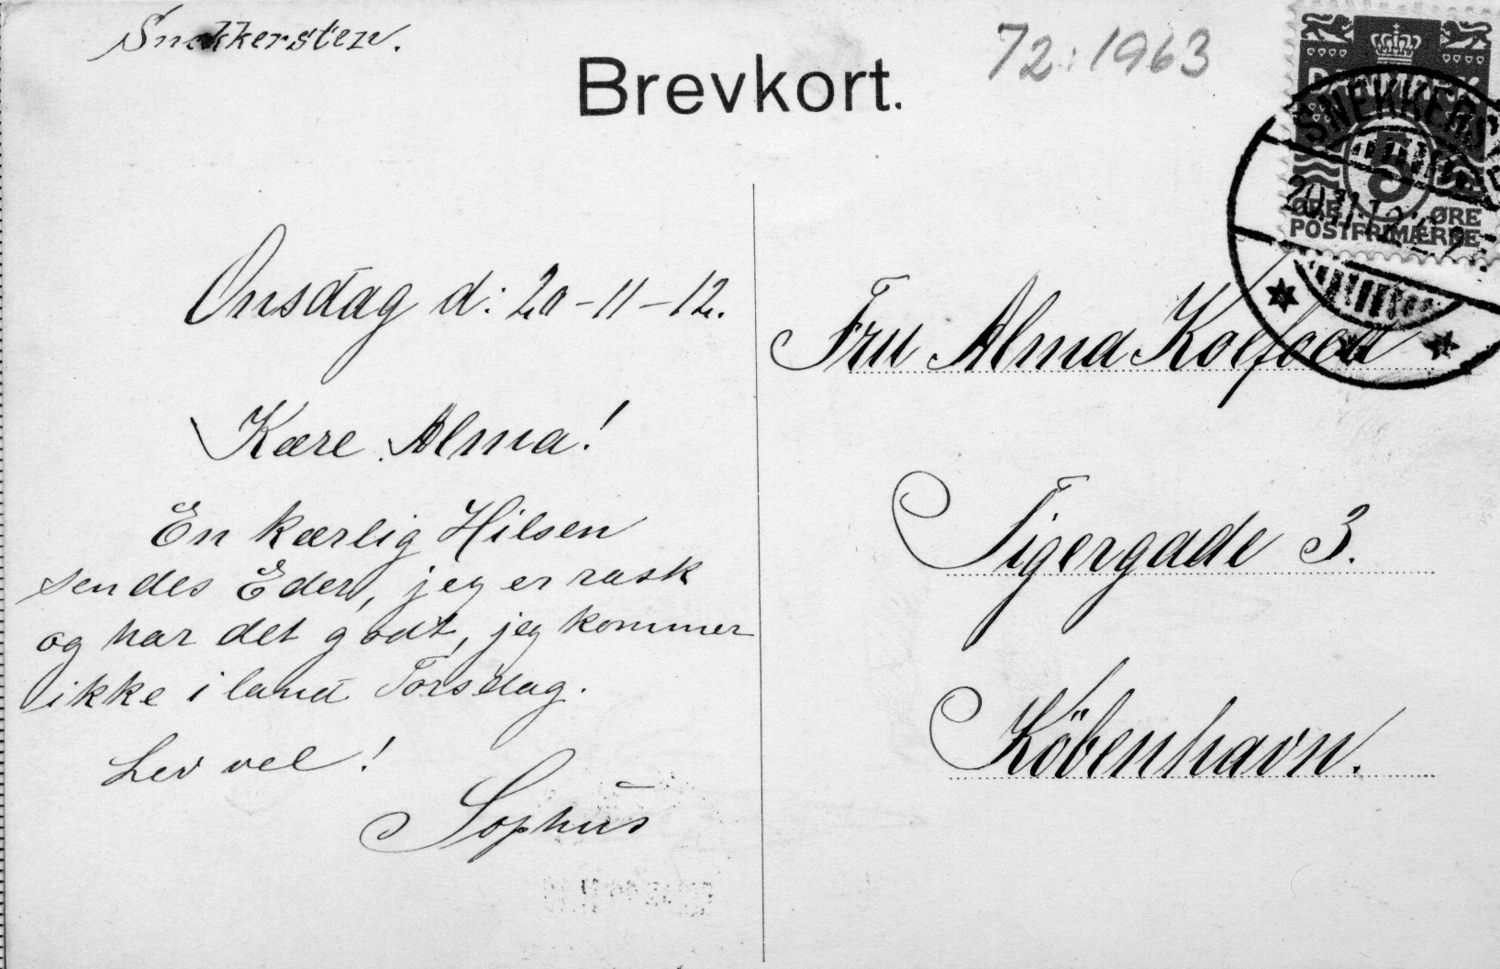 Snekkersten.
Brevkort.
72:1963
DANMARK
SNEKKERST
5
20.11.12
ØRE ØRE
POSTFRIMÆRKE
Onsdag d: 20-11-12.
Kære Alma!
En kærlig Hilsen
sendes Eder, jeg er rask
og har det godt, jeg kommer
ikke i land Torsdag.
Lev vel!
Sophus
Fru Alma Kolfoed
Tigergade 3.
Köbenhavn.